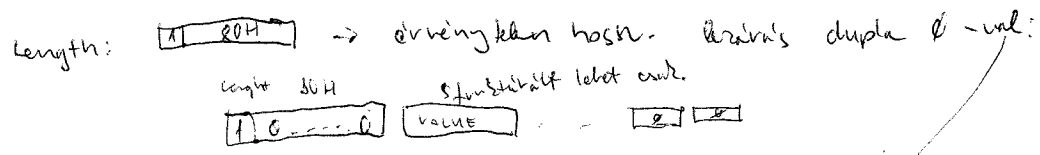 Length: 1 80H -> érvénytelen hossz. Lezárás dupla 0 -val:
Length 80H strukturált lehet csak.
1 0.....0 VALUE .. .. 0 0